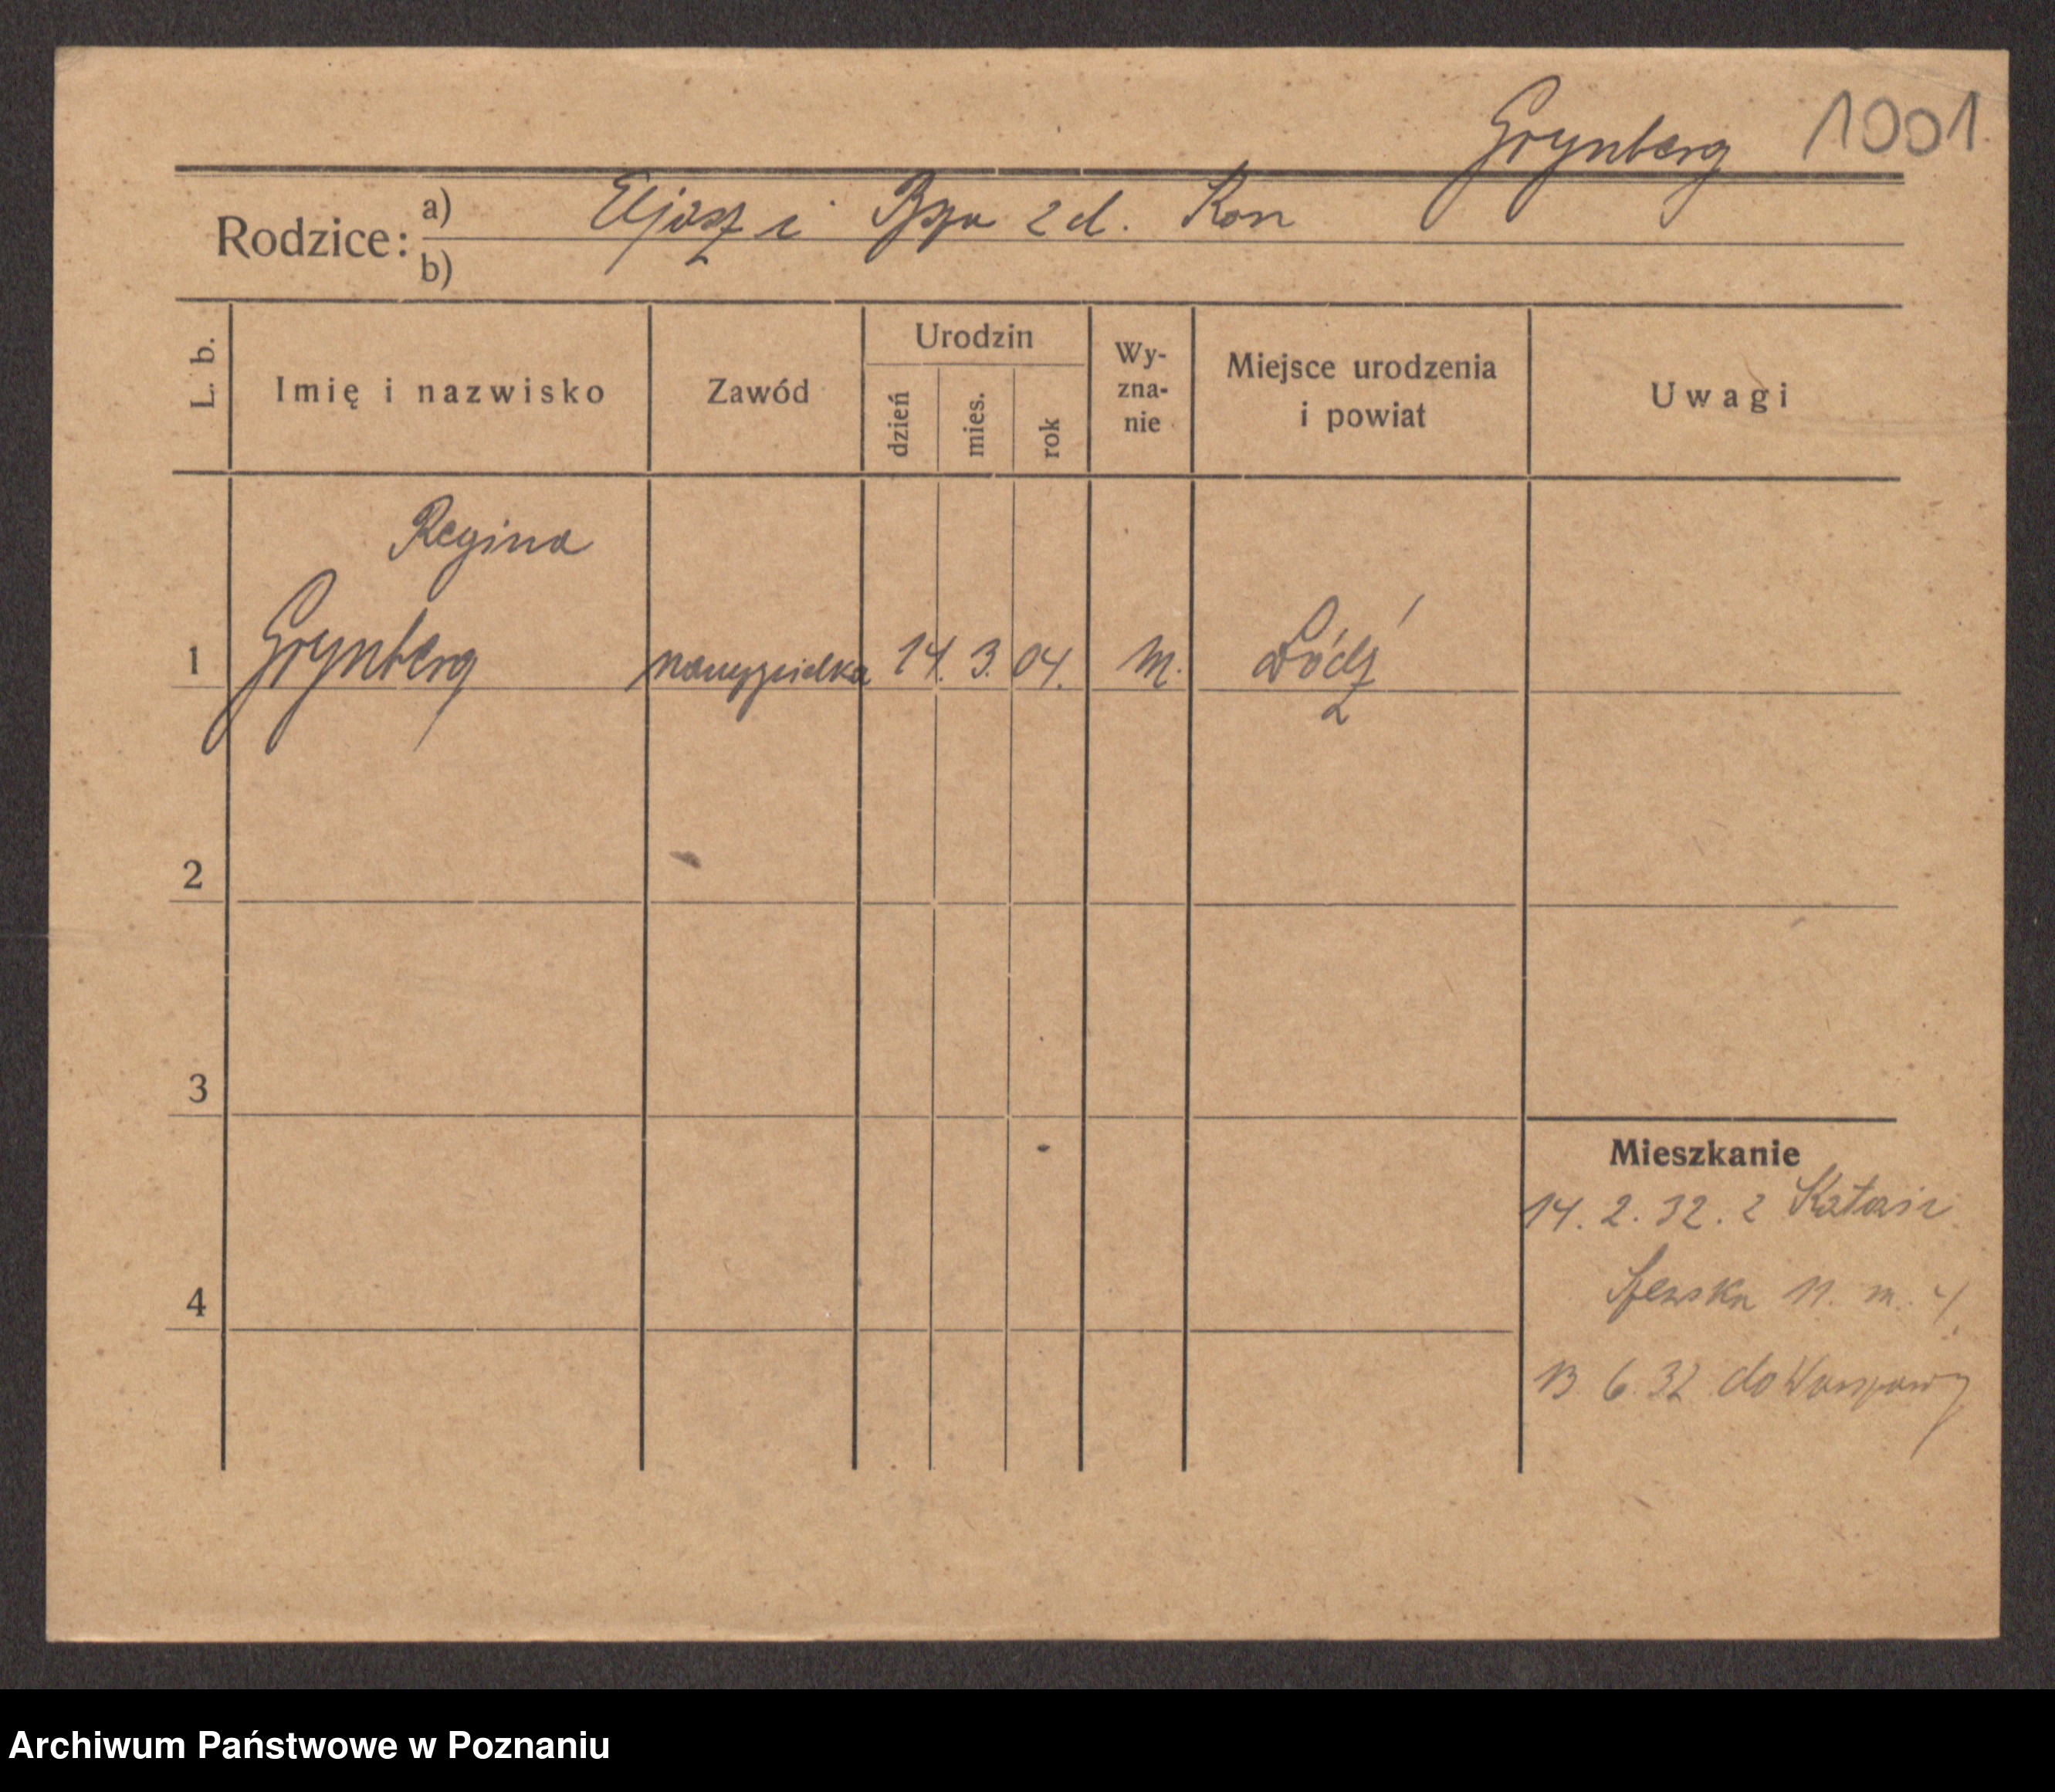 Grynberg 1001
Rodzice: a) Eljasz i Ryza z d. Kon
b)
L. b.
Imię i nazwisko
Zawód
Urodzin
dzień
mies.
rok
Wy-
zna-
nie
Miejsce urodzenia
i powiat
Uwagi
Regina
1 Grynberg nauczycielka 14. 3. 04. m. Łódź
2
3
4
Mieszkanie
14. 2. 32. z
Szewska 11. m. 4
13 6. 32 do Warszawy
Archiwum Państwowe w Poznaniu